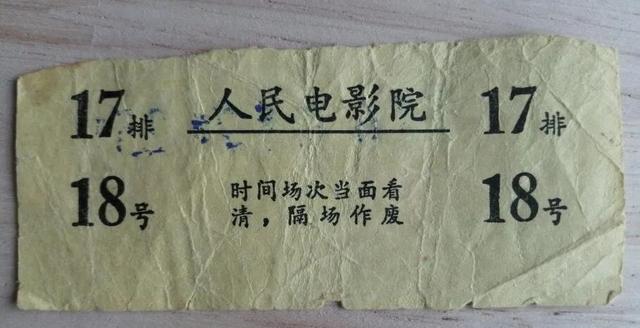 17排 人民电影院 17排
18号 时间场次当面看 18号
清，隔场作废